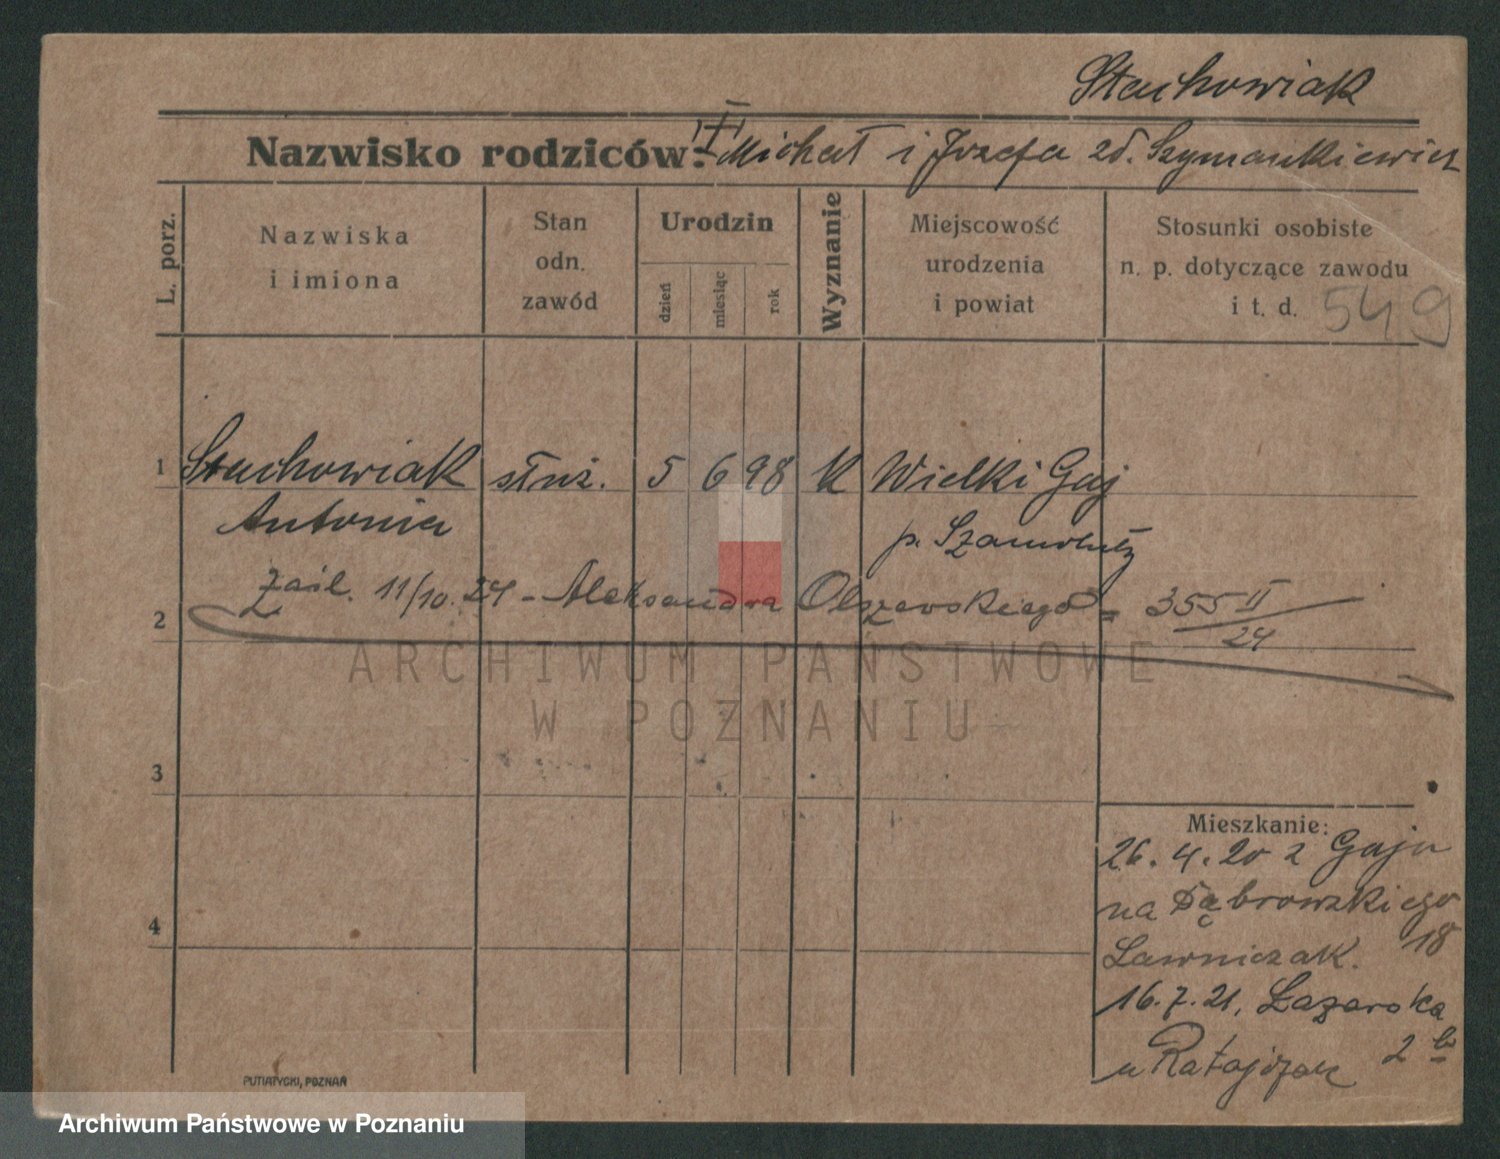 Stachowiak
Nazwisko rodziców: Michał i Józefa zd. Szymankiewicz
L. porz.
Nazwiska
i imiona
Stan
odn.
zawód
Urodzin
dzień
miesiąc
rok
Wyznanie
Miejscowość
urodzenia
i powiat
Stosunki osobiste
n. p. dotyczące zawodu
i t. d.
549
1 Stachowiak służ. 5 6 98 k Wielki Gaj
Antonia
p. Szamotuły
Zaśl. 11/10. 24 - Aleksandra Olszewskiego = 355 II
24
2
ARCHIWUM PAŃSTWOWE
W POZNANIU
3
4
Mieszkanie:
26. 4. 20 z Gaju
na Dąbrowskiego
18
Ławniczak.
16. 7. 21. Łazarska
u Ratajczak 2
PUTIATYCKI, POZNAŃ
Archiwum Państwowe w Poznaniu